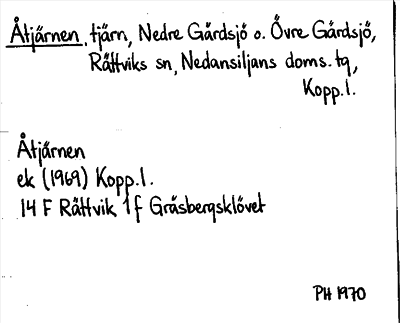 Åtjärnen, tjärn, Nedre Gärdsjö o. Övre Gärdsjö,
Rättviks sn, Nedansiljans doms. tg,
Kopp.l.
Åtjärnen
ek (1969) Kopp.l.
14 F Rättvik 1 f Gräsbergsklövet
PH 1970